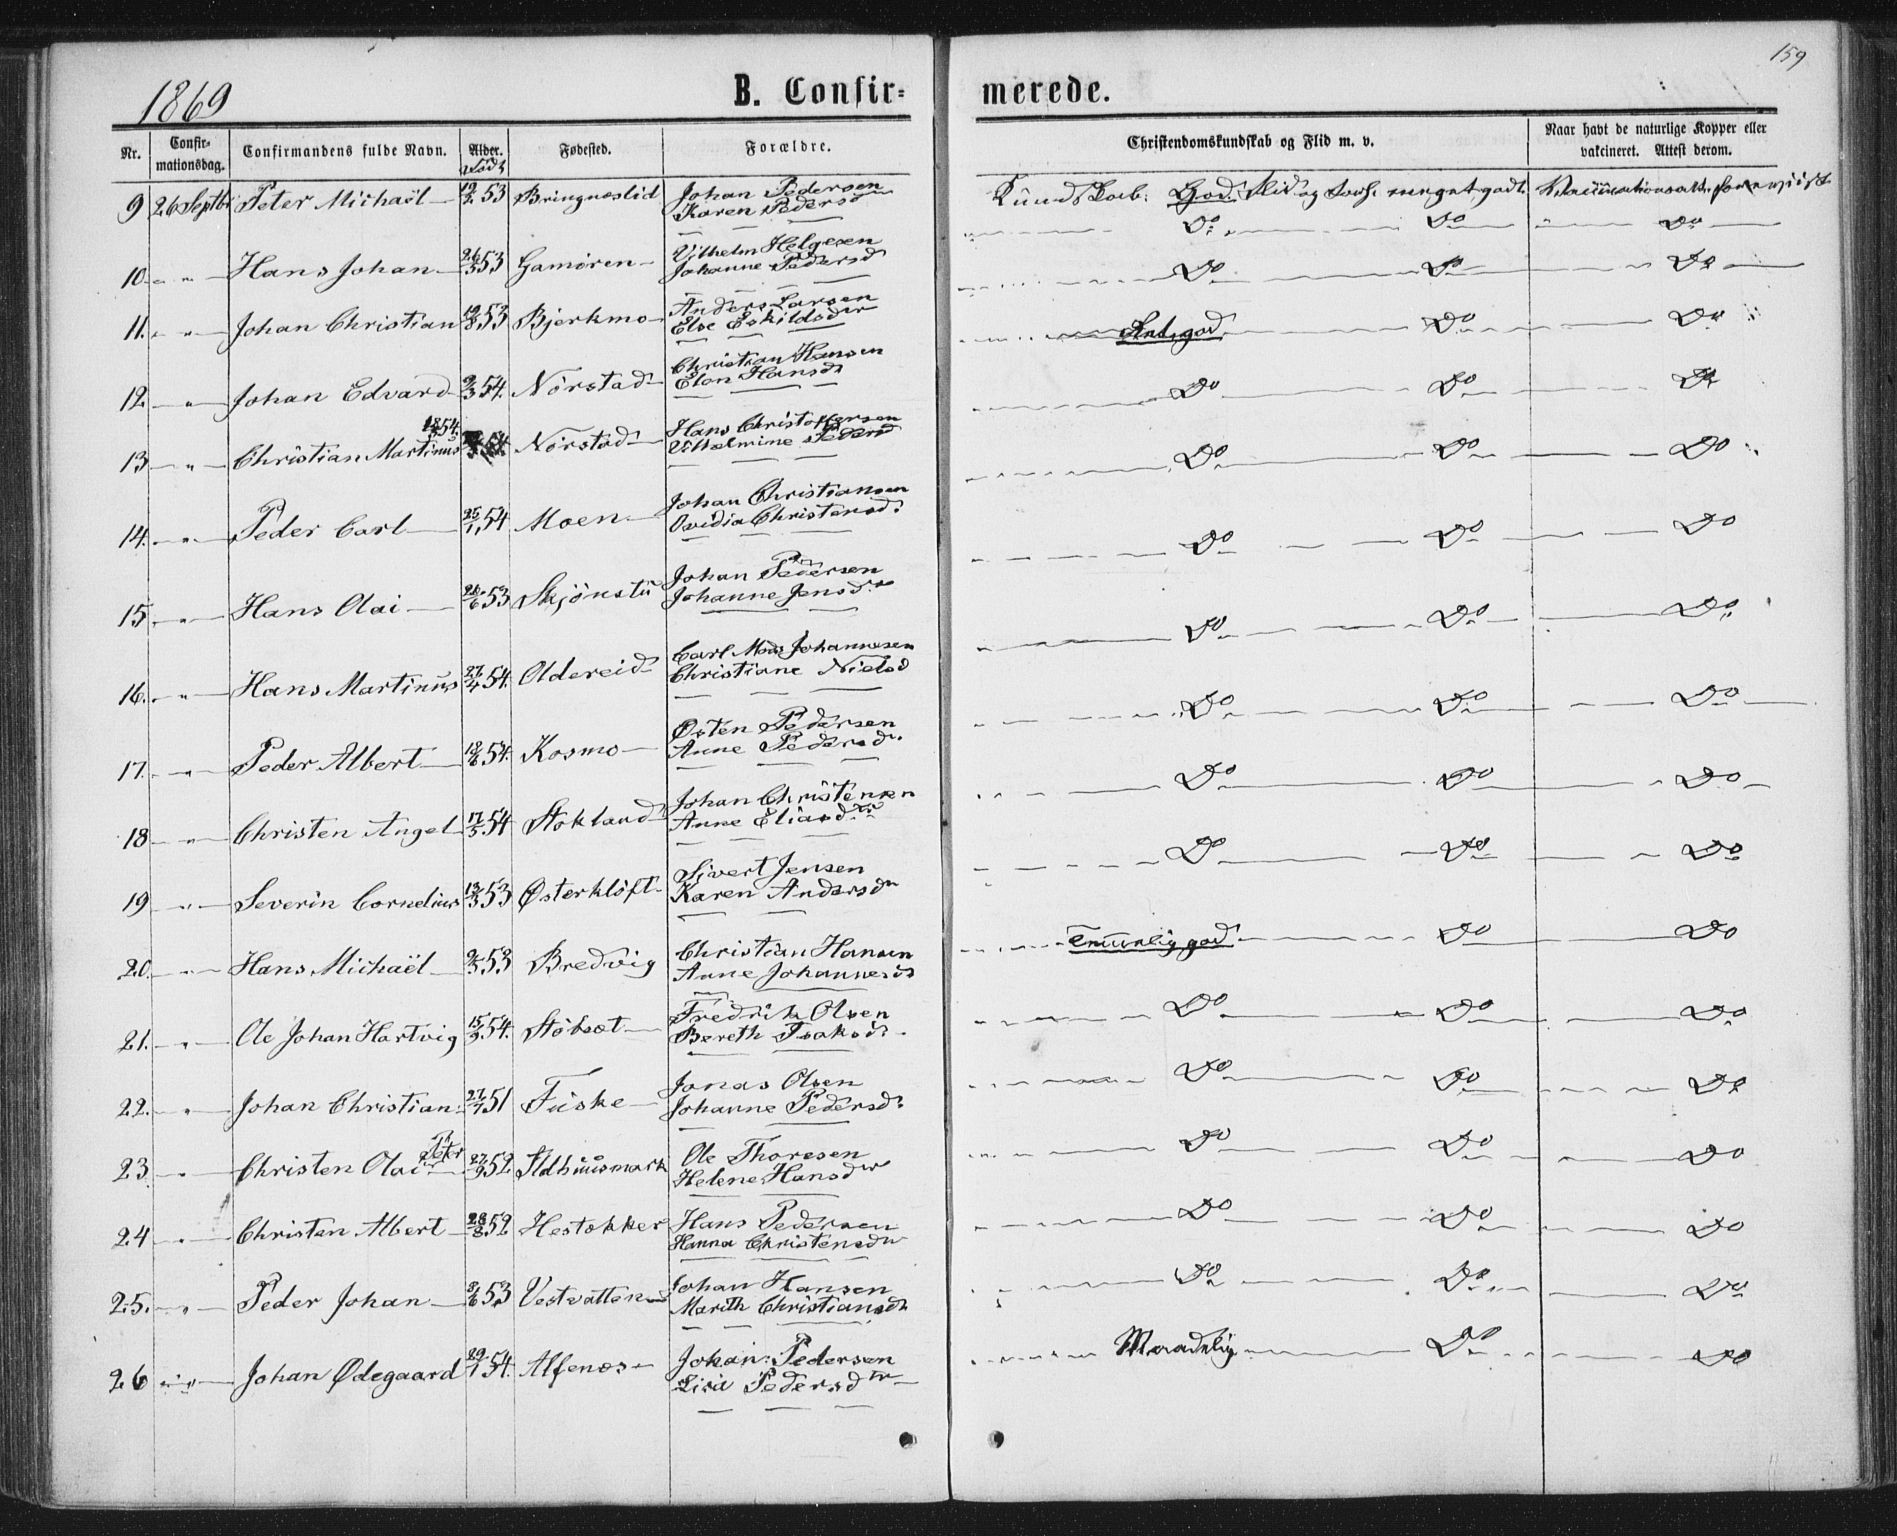 159
1869 B. Confir= merede.
Nr. Confir= mationsdag. Confirmandens fulde Navn. Alder. Fødested. Forældre. Christendomskundskab og Flid m. v. Naar havt de naturlige Kopper eller vakcineret. Attest derom.
Født
9 26 Septbr Peter Michaël 19/2 53 Bringneslid Johan Pedersen Kundskab: God. Flid og Forh. meget godt.
Karen Pedersd
Do Do Do
10 " " Hans Johan 26/3 53 Gamøren Vilhelm Helgesen
Johanne Pedersd Do Do Do
11. " " Johan Christian 19/8 53 Bjerkmo Anders Larsen
Else Eskildsdr god Do Do
12 " Johan Edvard 9/3 54. Nørstad Christian Hansen
Elen Hansd Do Do Do
13 " Christian Martinus 54 Nørstad Hans Christophersen
Vilhelmine Pedersd Do Do Do
14. " Peder Carl 25/1 54 Moen Johan Christiansen
Ovidia Christensd: Do Do Do
15 " Hans Olai 26/6 53 Skjønstu Johan Pedersen
Johanne Jensdr Do Do Do
16. " Hans Martinus 27/4 54. Oldereid Carl Mads Johannesen
Christiane Nielsd Do Do Do
17. " Peder Albert 18/6 54. Kosmo Østen Pedersen
Anne Pedersd. Do Do Do
18 " Christen Angel 17/5 54 Stokland Johan Christensen
Anne Eliasdtr Do Do Do
19 " Severin Cornelius 13/3 53 Østerkløft Sivert Jensen
Karen Andersdr
20. " Hans Michaël 9/3 53 Bredvig Christian Hansen Temmelig god Do Do
Anne Johannesd
21. " Ole Johan Hartvig 15/9 54. Støbset Fredrik Olsen Do Do Do
Bereth Isaksd
22. " Johan Christian 27/7 51 Fuske Jonas Olsen Do Do Do
Johanne Pedersd.
23 " Christen Olai Peter 27/9 52 Ildhuusmark Ole Thoresen Do Do Do
Helene Hansdr
24 " Christen Albert 28/8 52 Hestekker Hans Pedersen Do Do Do
Hanna Christensdr
25. " Peder Johan 8/6 53 Vestvatten Johan Hansen Do Do Do
Marith Christiansd
26 " " Johan Ødegaard 29/1 54. Alfenes Johan Pedersen Maadelig Do Do
Lisa Pedersdtr